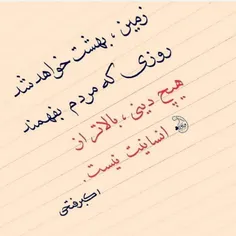 زمین، بهشت خواهد شد
روزی که مردم بفهمند
هیچ دینی، بالاتر از
انسانیت نیست.
اکبر فتحی